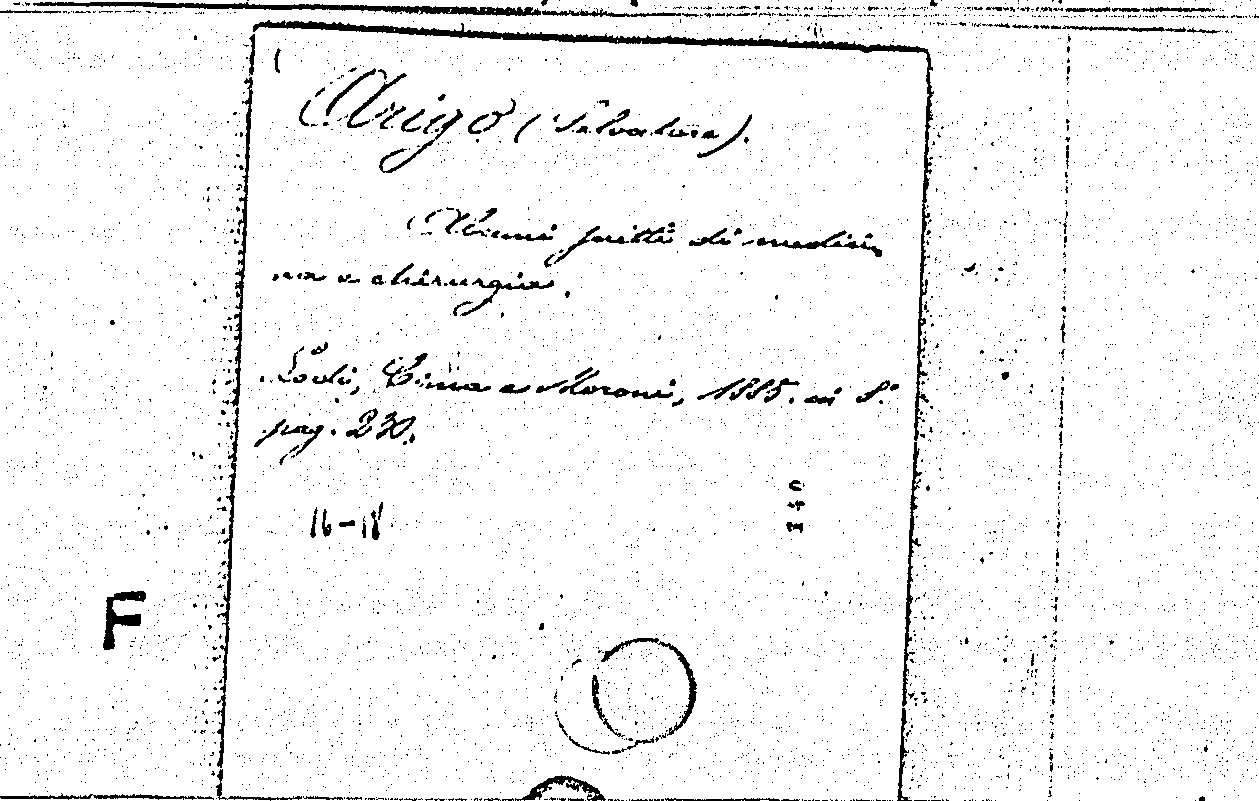 Arigo (Salvatore).
Alcuni scritti di medici-
na e chirurgia.
Lodi, Cima e Moroni, 1885. in 8.°
pag. 230.
16-18
140
F